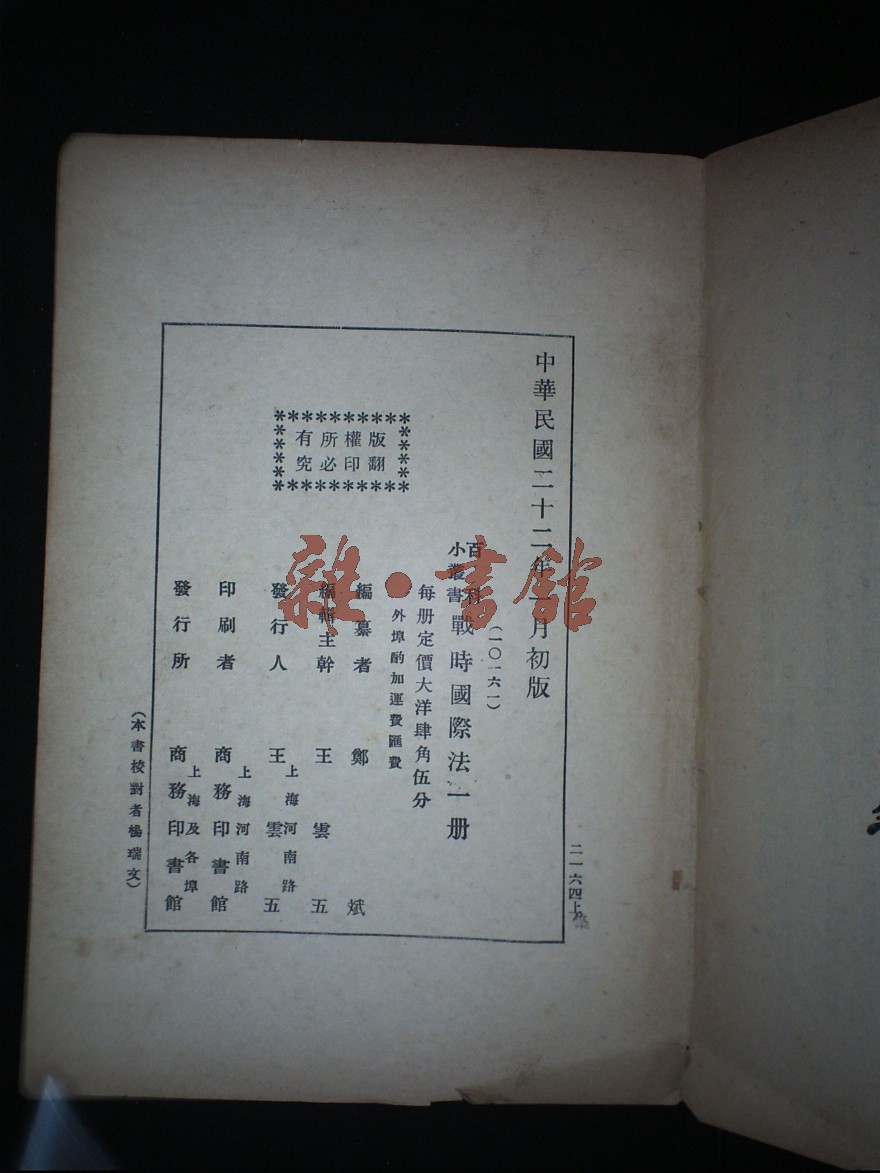 中華民國二十二年一月初版
二一六四上
(一〇一六一)
百科
小叢書
戰時國際法一册
每册定價大洋肆角伍分
外埠酌加運費匯費
版權所有
翻印必究
編纂者 鄭斌
編輯主幹 王雲五
發行人 上海河南路
王雲五
印刷者 上海河南路
商務印書館
發行所 上海及各埠
商務印書館
(本書校對者楊瑞文)
雜·書館